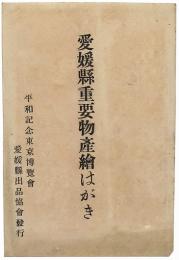 愛媛縣重要物産繪はがき
平和記念東京博覽會
愛媛縣出品協會發行